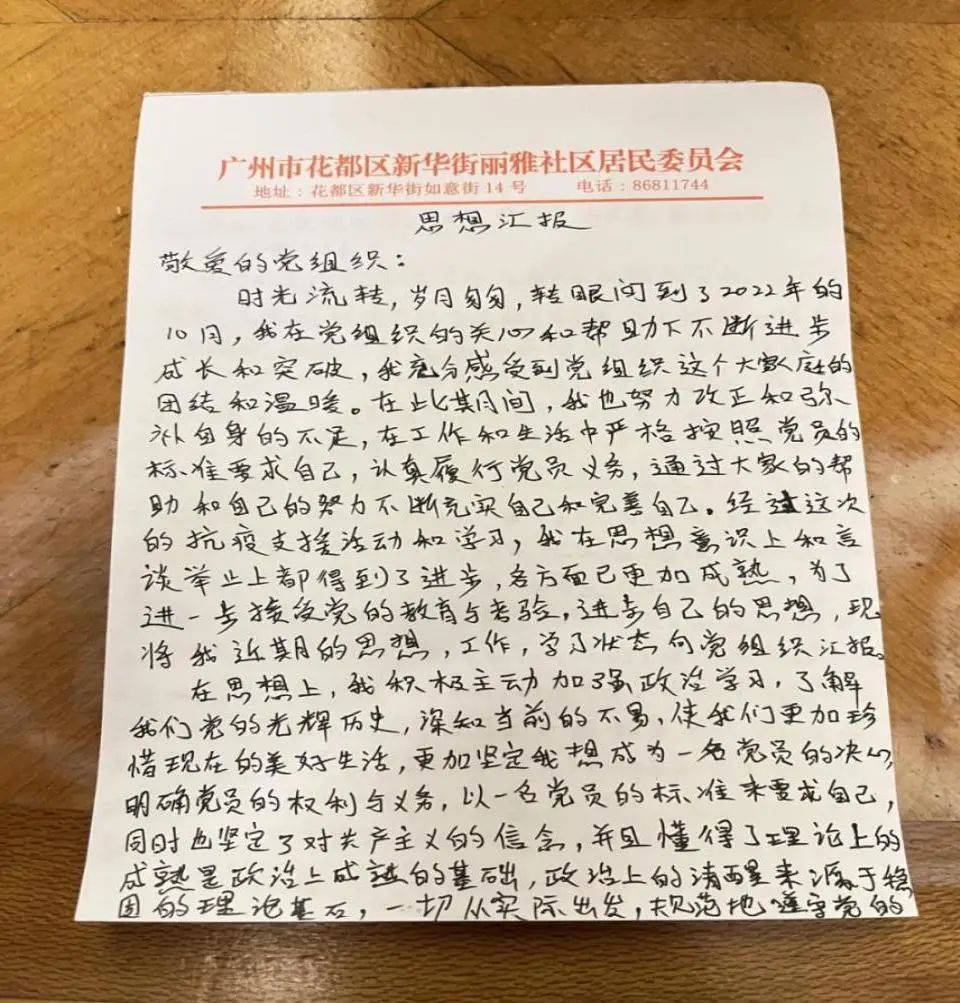 广州市花都区新华街丽雅社区居民委员会
地址：花都区新华街如意街14号 电话：86811744
思想汇报
敬爱的党组织：
时光流转，岁月匆匆，转眼间到了2022年的
10月，我在党组织的关心和帮助下不断进步
成长和突破，我充分感受到党组织这个大家庭的
团结和温暖。在此期间，我也努力改正和弥
补自身的不足，在工作和生活中严格按照党员的
标准要求自己，认真履行党员义务，通过大家的帮
助和自己的努力不断充实自己和完善自己。经过这次
的抗疫支援活动和学习，我在思想意识上和言
谈举止上都得到了进步，各方面已更加成熟，为了
进一步接受党的教育与考验，进步自己的思想，现
将我近期的思想，工作，学习状态向党组织汇报。
在思想上，我积极主动加强政治学习，了解
我们党的光辉历史，深知当前的不易，使我们更加珍
惜现在的美好生活，更加坚定我想成为一名党员的决心，
明确党员的权利与义务，以一名党员的标准来要求自己，
同时也坚定了对共产主义的信念，并且懂得了理论上的
成熟是政治上成熟的基础，政治上的清醒来源于稳
固的理论基石，一切从实际出发，规范地遵守党的